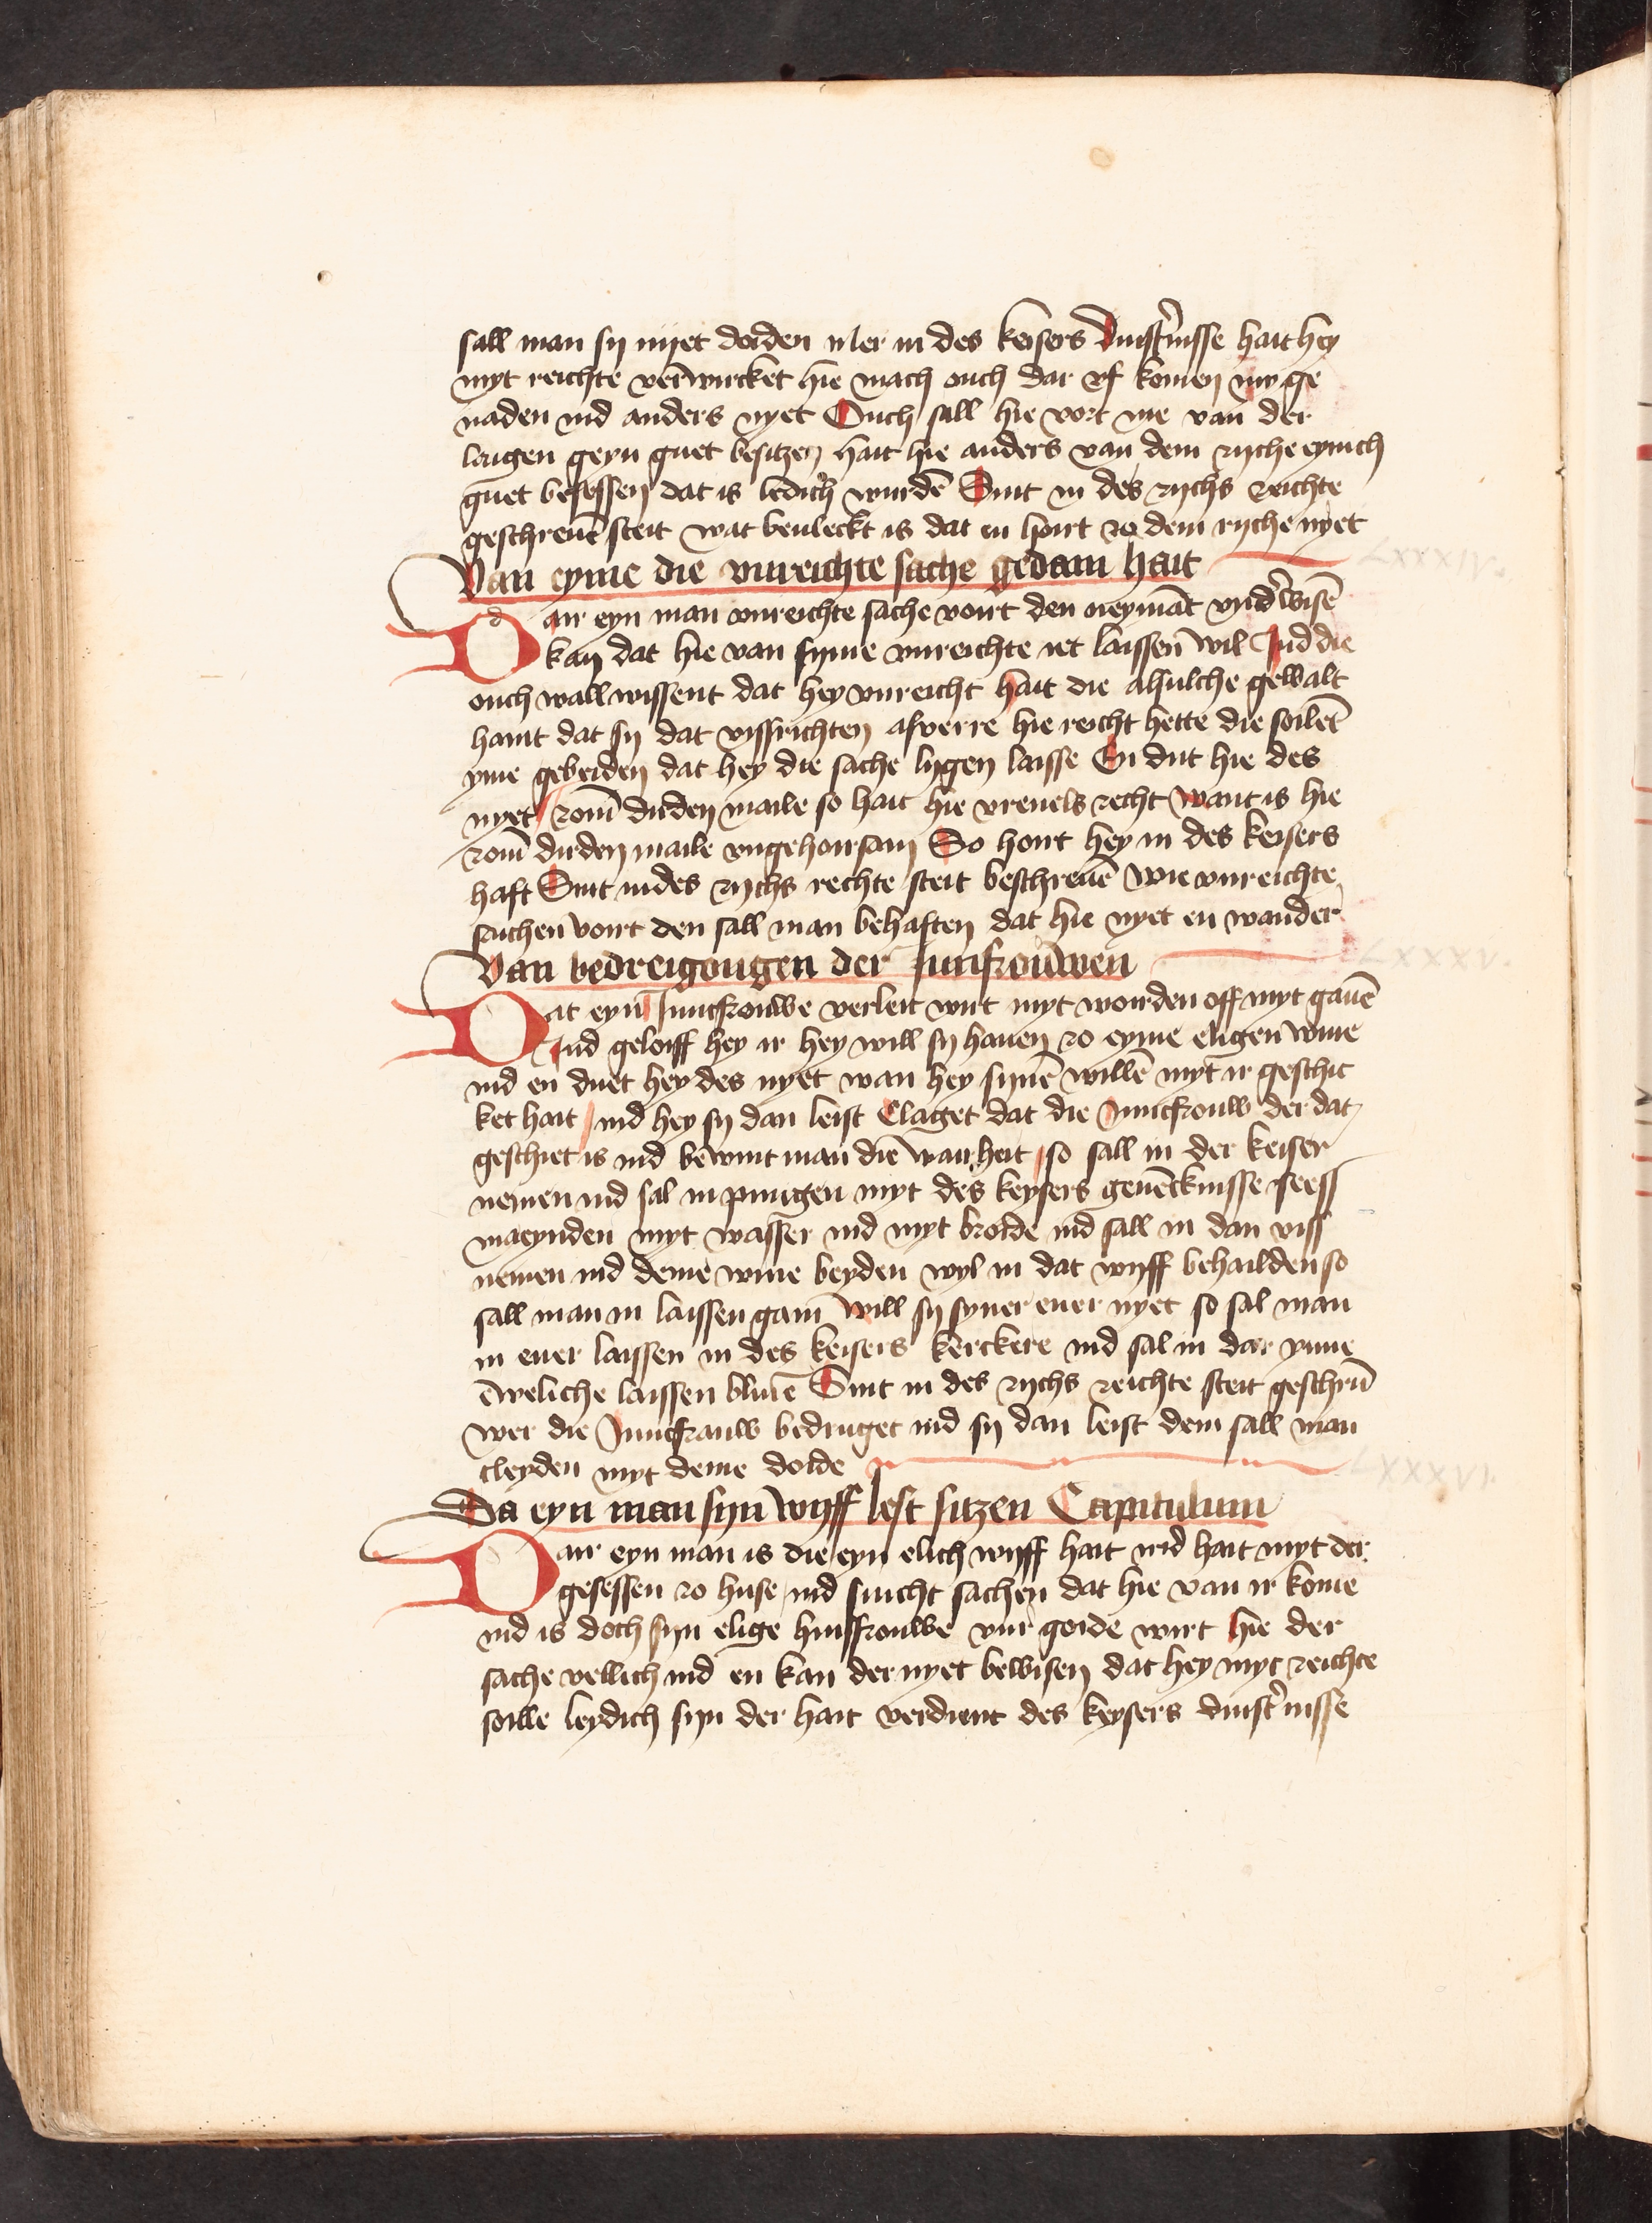 sall man sy nyet doiden Mer in des keisers duist'nisse hait hey
myt reichte verwircket hie mach ouch dar vf komen my ge
naden ind anders nyet Ouch sall hie vort me van der
leugen geyn guet besitzen hait hie anders van dem ryche eynich
guet besessen dat is ledich wurdē Sint in des rychs reichte
geschreuē steit wat beuleckt is dat en hoirt zo dem ryche nyet
Van eyme die vnreichte sache gedain hait
LXXXIV.
Dair eyn man vnreichte sache voirt den neymāt vnd'wisē
kan dat hie van syme vnreichte iet laissen wil Ind die
ouch wall wissent dat hey vnreicht hait die alsulche gewalt
haint dat sy dat vissrichten alverre hie reicht hette die soilēt
yme gebeiden dat hey die sache lygen laisse En dut hie des
nyet zom dirden maile so hait hie vreuels recht Want is hie
zom dirden maile vngehoirsam So hoirt hey in des keisers
haft Sint in des rychs rechte steit beschreuē wie vnreichte
sachen voirt den sall man behaften dat hie nyet en wander
Van bedreigongen der Junfrouwen
LXXXV.
Dat eyn Junfrouwe verleit wirt myt worden off myt gauē
Ind geloiff hey ir hey will sy hauen zo eyme eligen wiue
ind en duet hey des nyet wan hey synē willē myt ir geschic
ket hait ind hey sy dan leist Claget dat die Juncfrouw der dat
geschiet is ind bewint man die wairheit so sall in der keiser
nemen ind sal in pingen myt des keysers geuēcknisse seess
maeynden myt wasser ind myt broide ind sall in dan viss
nemen ind deme wiue beyden wyl in dat wyff behailden so
sall man in laissen gain will sy syner euer nyet so sal man
in euer laissen in des keisers kerckere ind sal in dar ynne
ēweliche laissen bliuē Sint in des rychs reichte steit geschrū
wer die Juncfrauw bedruget ind sy dan leist dem sall man
cleyden myt deme doide
LXXXVI.
Da eyn man syn wyff lest sitzen Capitulum
Dair eyn man is die eyn elich wyff hait ind hait myt der
gesessen zo huse ind suicht sachen dat hie van ir kome
ind is doch syn elige huisfrouwe vur goide wirt hie der
sache vellich ind en kan der nyet bewisen dat hey myt reichte
soille leydich syn der hait verdient des keysers duist'nisse